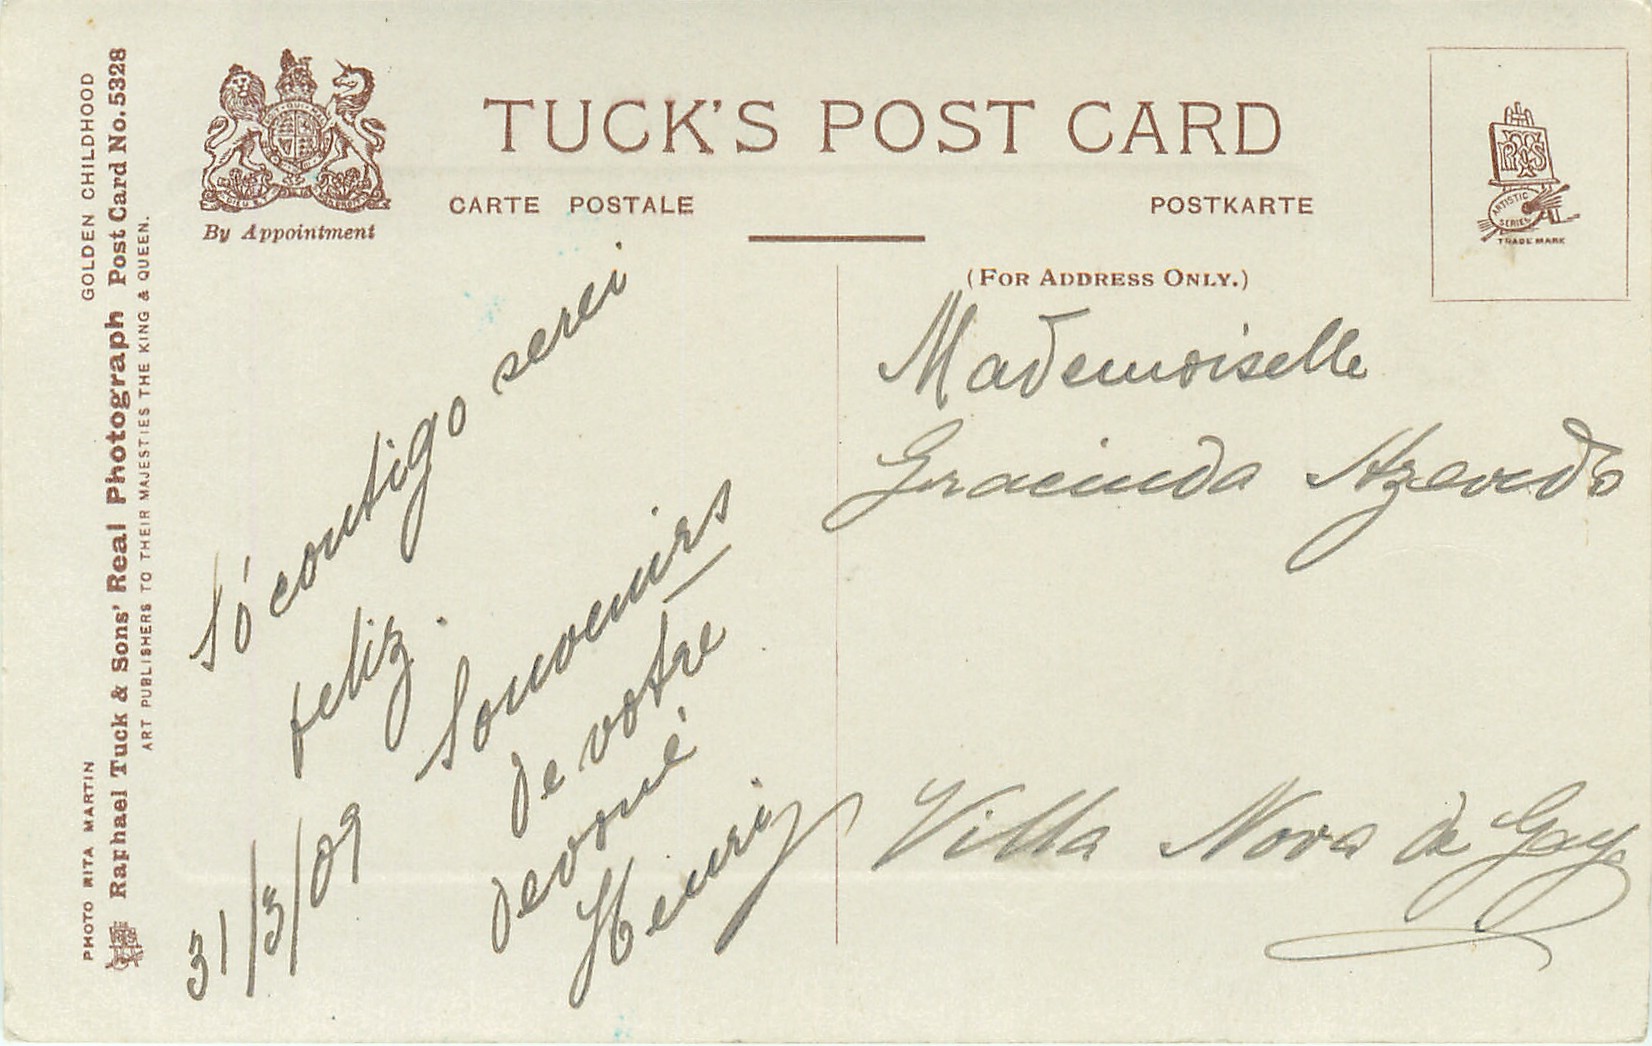 TUCK'S POST CARD
CARTE POSTALE
POSTKARTE
By Appointment
(FOR ADDRESS ONLY.)
RT&S
ARTISTIC
SERIES
TRADE MARK
PHOTO RITA MARTIN
GOLDEN CHILDHOOD
Raphael Tuck & Sons' Real Photograph Post Card No. 5328
ART PUBLISHERS TO THEIR MAJESTIES THE KING & QUEEN.
Só contigo serei
feliz.
Souvenirs
de votre
devoué
Henri
31/3/09
Mademoiselle
Gracinda Azevedo
Villa Nova de Gaya